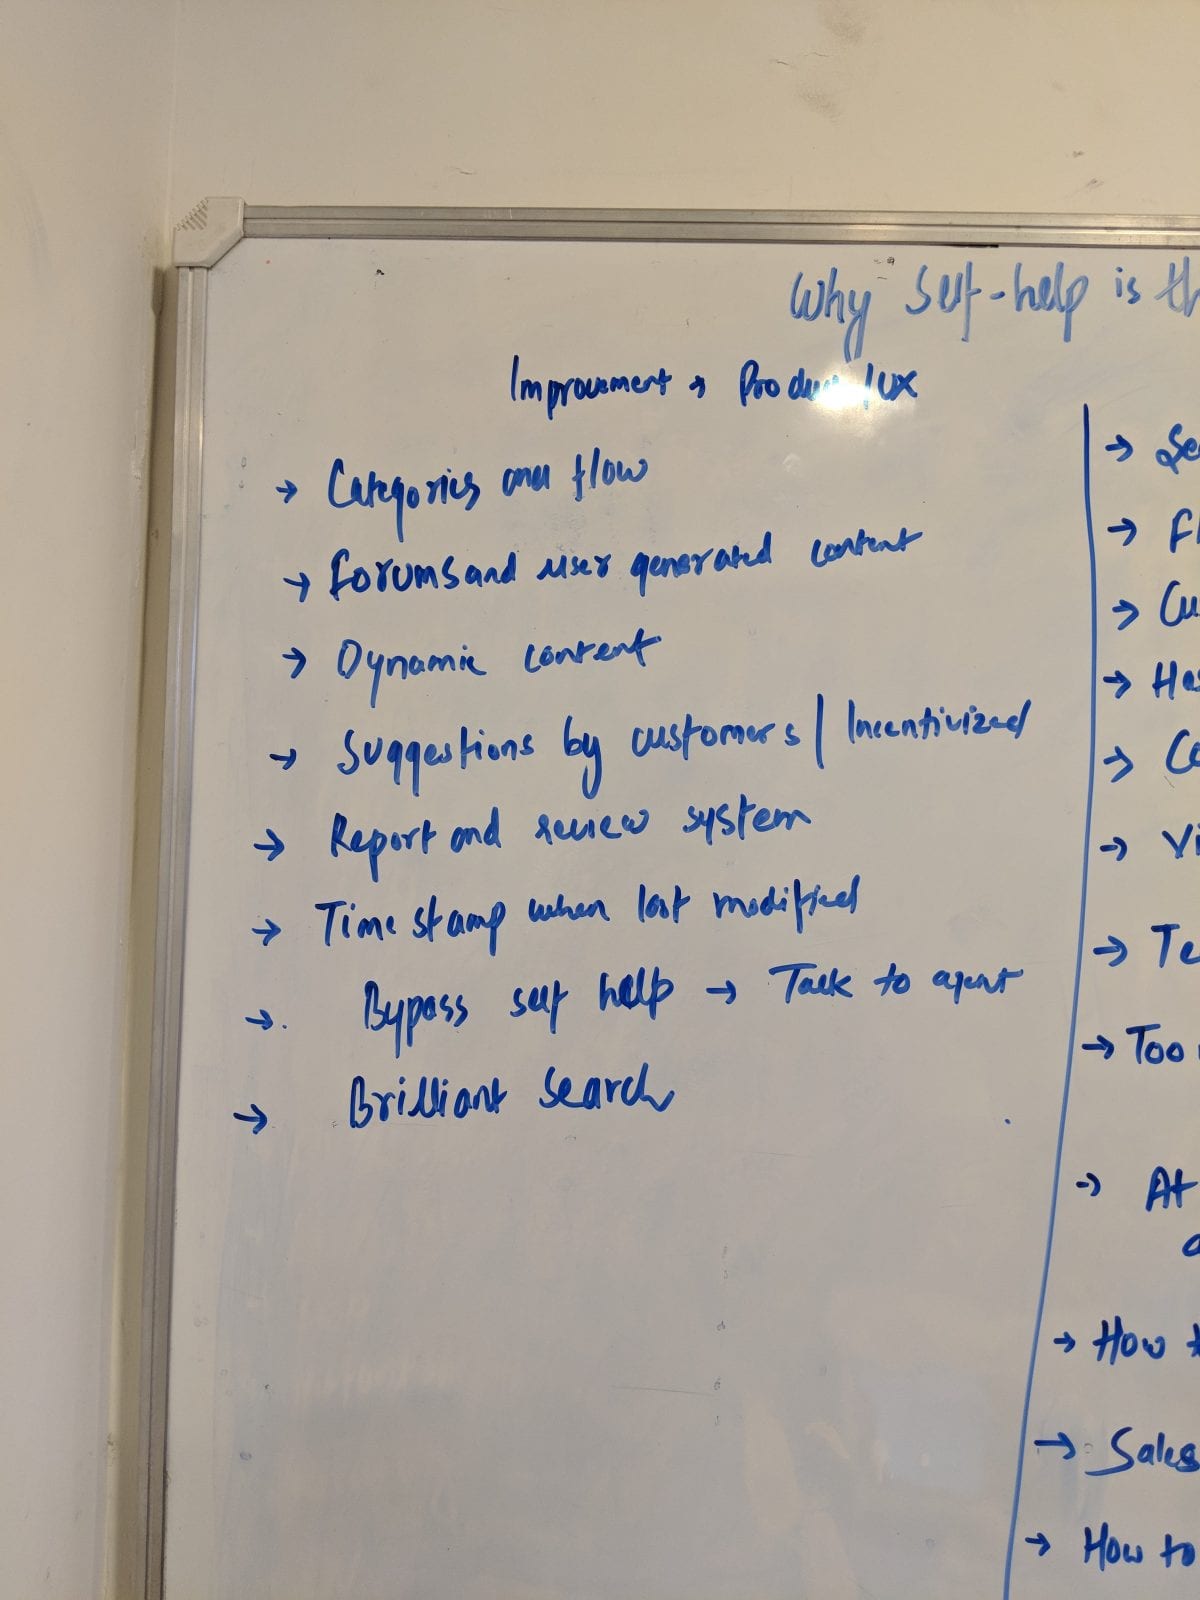 Why Self-help is th
Improvement → Product/UX
→ Categories and flow
→ Forums and user generated content
→ Dynamic content
→ Suggestions by customers / Incentivized
→ Report and review system
→ Time stamp when last modified
→. Bypass self help → Talk to agent
→ Brilliant Search
→ Se
→ Fl
→ Cu
→ Has
→ Co
→ Vi
→ Te
→ Too
→ At
→ How t
→ Sales
→ How to